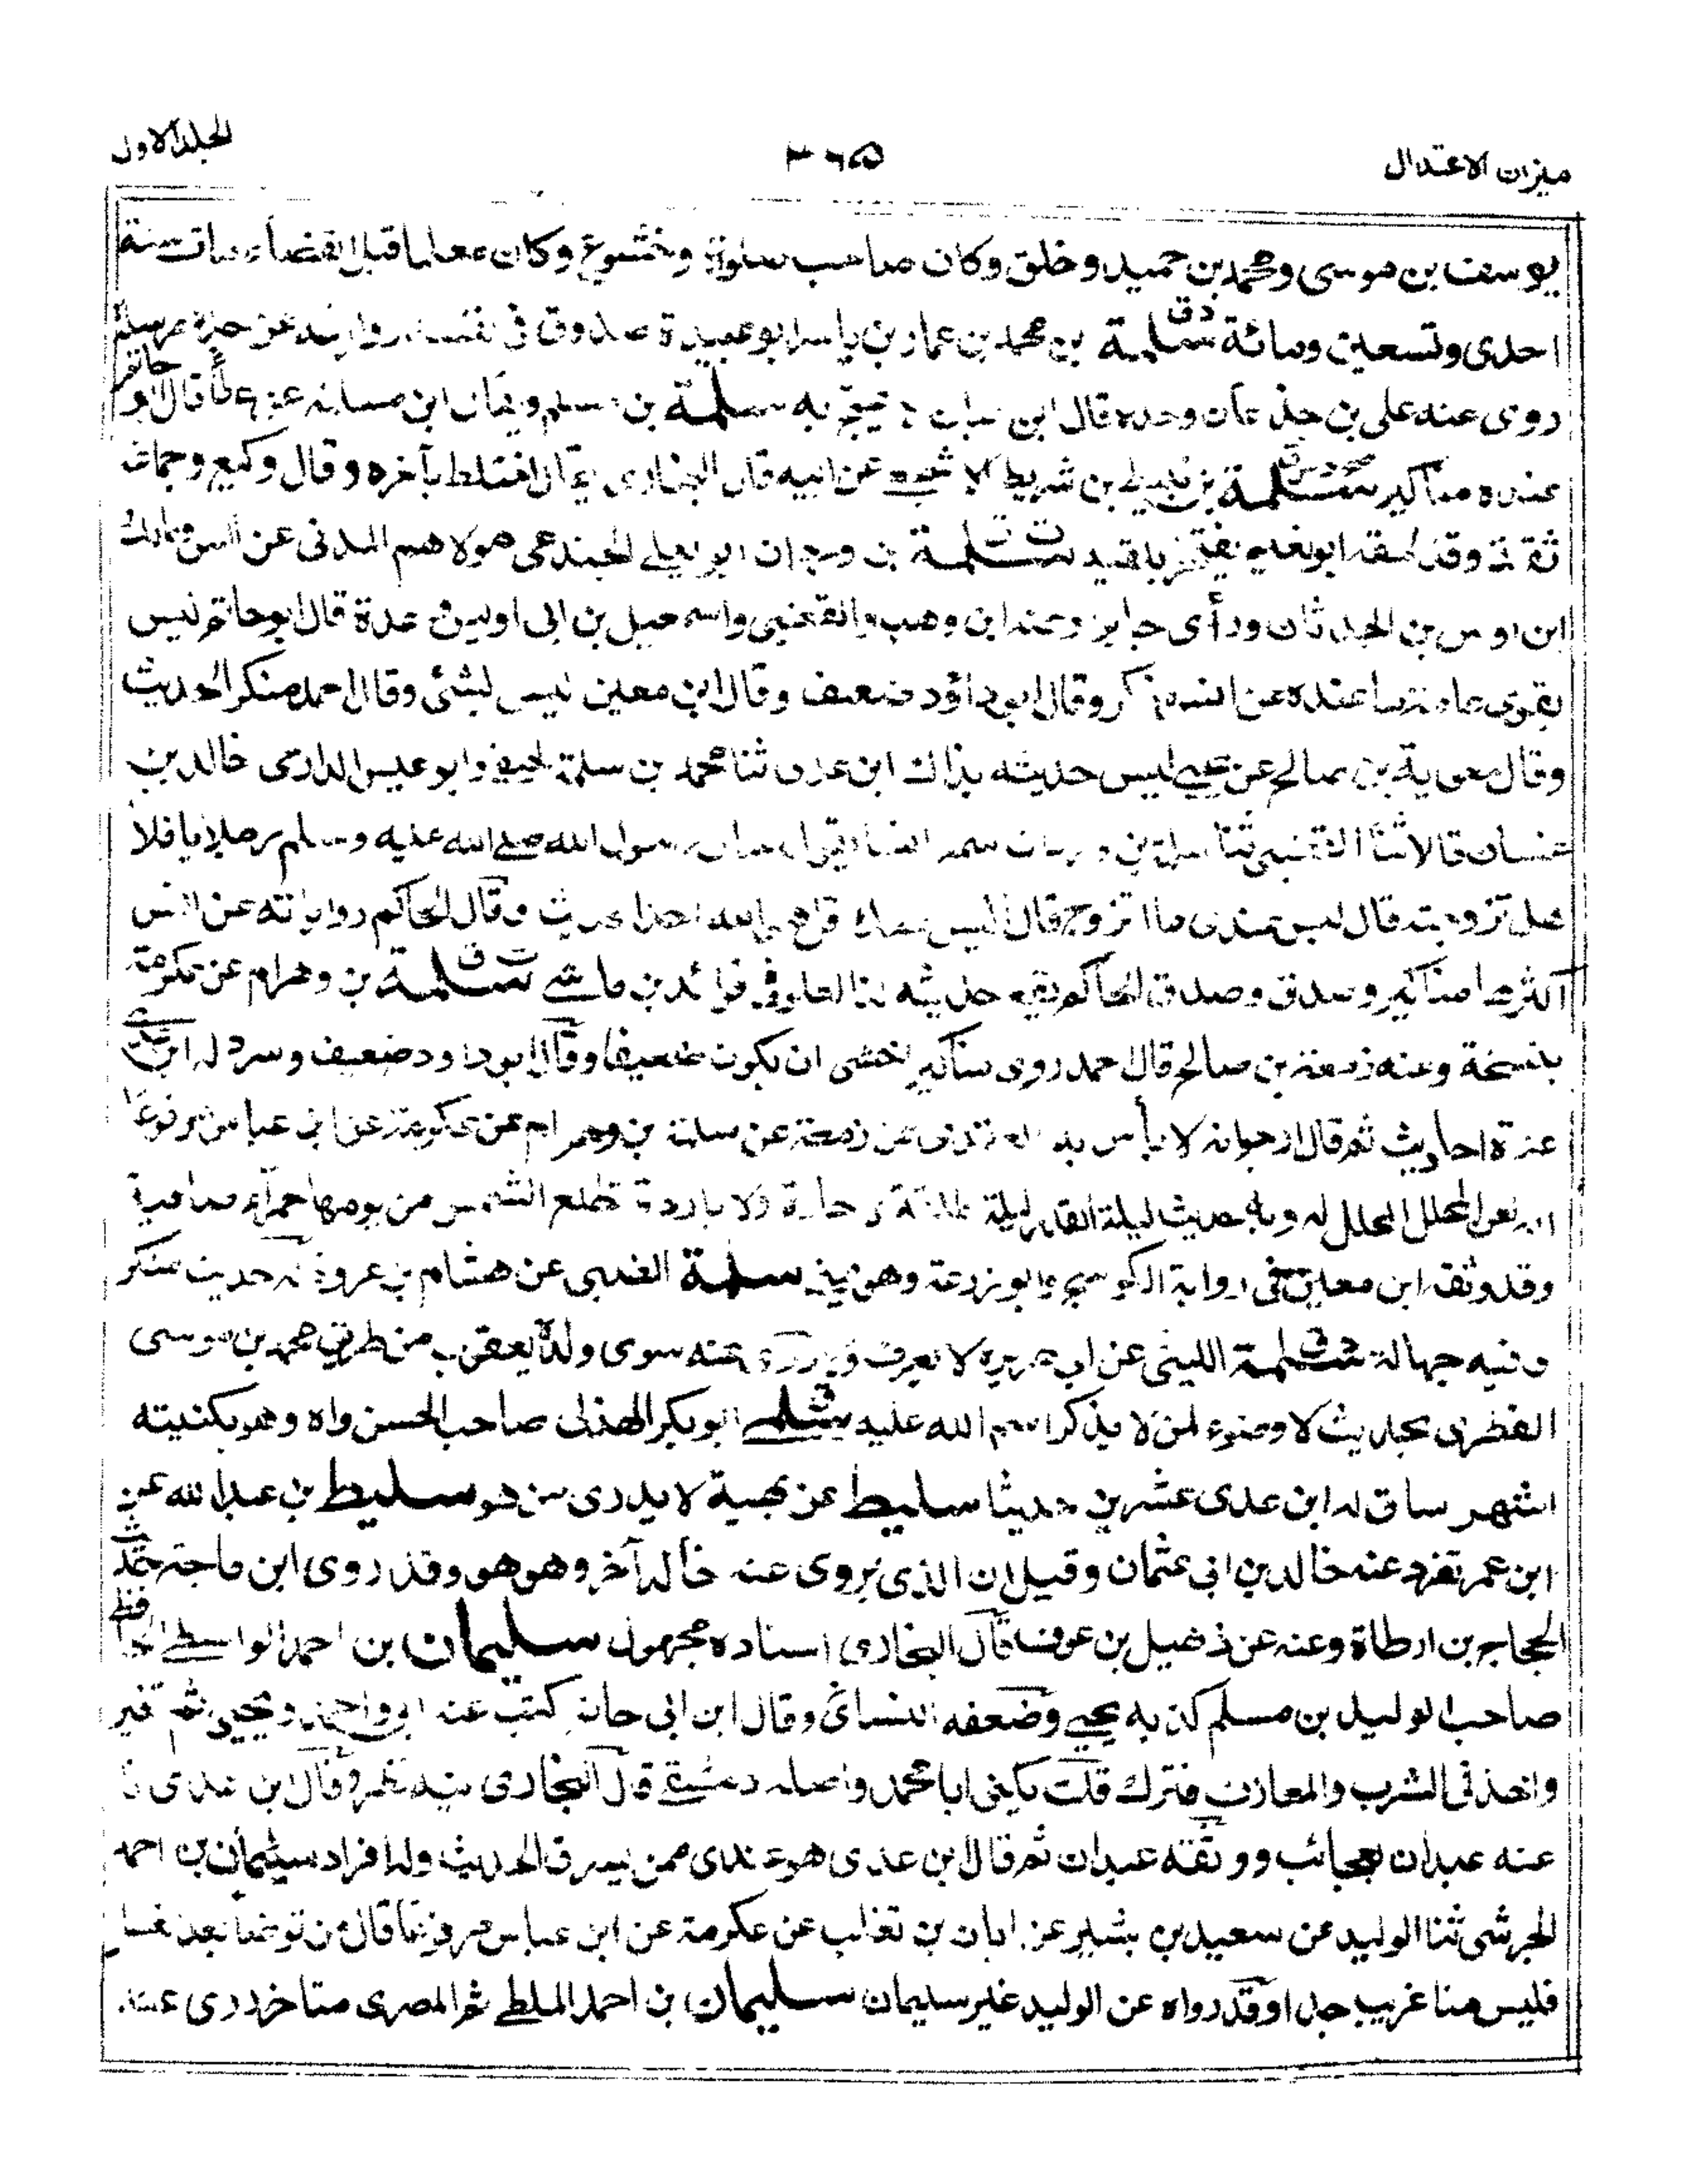 ميزان الاعتدال
٣٦٥
المجلد الاول
يوسف بن موسى ومحمد بن حميد وخلق وكان صاحب صلوة وخشوع وكان معلما قبل القضاء مات سنة
احدى وتسعين ومائة دق سلمة بن محمد بن عمار بن ياسر ابو عبيدة صدوق فى نفسه روايته عن جده مرسلة
روى عنه على بن جذعان وحده قال ابن حبان لا يحتج به سلمة بن مسلم ويقال ابن مسلمة عن عطاء قال ابو حاتم
عنده مناكير سلمة بن نبيط بن شريط الاشجعى عن ابيه قال البخارى يقال اختلط بآخره وقال وكيع وجماعة
ثقة وقد لحقه ابو نعيم يفتخر بلقيه ت ق سلمة بن وردان ابو يعلى الجندعى مولاهم المدنى عن انس ومالك
ابن اوس بن الحدثان ورأى جابرا وعنه ابن وهب والقعنبى واسمعيل بن ابى اويس وعدة قال ابو حاتم ليس
بقوى عامة ما عنده عن انس منكر وقال ابو داؤد ضعيف وقال ابن معين ليس بشئ وقال احمد منكر الحديث
وقال معوية بن صالح عن يحيى ليس حديثه بذاك ابن عدى ثنا محمد بن سلمة وابو عيسى الدارى خالد بن
غسان قالا ثنا القعنبى ثنا سلمة بن وردان سمع انسا يقول سأل رسول الله صلى الله عليه وسلم رجلا يا فلان
هل تزوجت قال ليس عندى ما اتزوج قال اليس معك قل هو الله احد الحديث وقال الحاكم رواياته عن انس
اكثرها مناكير وصدق وصدق الحاكم يقع حديثه لنا العلو فى فوائد بن ماسى ت ق سلمة بن وهرام عن عكرمة
بنسخة وعنه زمعة بن صالح قال احمد روى مناكير اخشى ان يكون ضعيفا وقال ابو داود ضعيف وسرد له ابن عدى
عدة احاديث ثم قال ارجو انه لا بأس به عن زمعة عن سلمة بن وهرام عن عكرمة عن ابن عباس مرفوعا
لعن المحلل المحلل له وبه حديث ليلة القدر ليلة طلقة لا حارة ولا باردة تطلع الشمس من يومها حمراء صافية
وقد وثقه ابن معين فى رواية الكوسج وابو زرعة سلمة الضبى عن هشام بن عروة له حديث منكر
وفيه جهالة د ق سلمة الليثى عن ابى هريرة لا يعرف ولا روى عنه سوى ولده يعقوب من طريق محمد بن موسى
الفطرى بحديث لا وضوء لمن لا يذكر اسم الله عليه ق سلمى ابو بكر الهذلى صاحب الحسن واه وهو بكنيته
اشهر ساق له ابن عدى عشرين حديثا سليط عن بهية لا يدرى من هو سليط بن عبد الله عن
ابن عمر تفرد عنه خالد بن ابى عثمان وقيل ان الذى يروى عنه خالد آخر وهو هو وقد روى ابن ماجة حديث
الحجاج بن ارطاة وعنه عن ذهيل بن عوف قال البخارى اسناده مجهول سليمان بن احمد الواسطى الحافظ
صاحب الوليد بن مسلم كذبه يحيى وضعفه النسائى وقال ابن ابى حاتم كتب عنه ابى واحمد ويحيى ثم تغير
واخذ فى الشرب والمعازف فترك قلت يكنى ابا محمد واصله دمشقى قال البخارى فيه نظر وقال ابن عدى ثنا
عنه عبدان بعجائب ووثقه عبدان ثم قال ابن عدى هو عندى ممن يسرق الحديث وله افراد سليمان بن احمد
الجرشى ثنا الوليد عن سعيد بن بشير عن ابان بن تغلب عن عكرمة عن ابن عباس مرفوعا قال من توضأ بعد غسل
فليس منا غريب جدا وقد رواه عن الوليد غير سليمان سليمان بن احمد الملطى ثم المصرى متاخر روى عنه